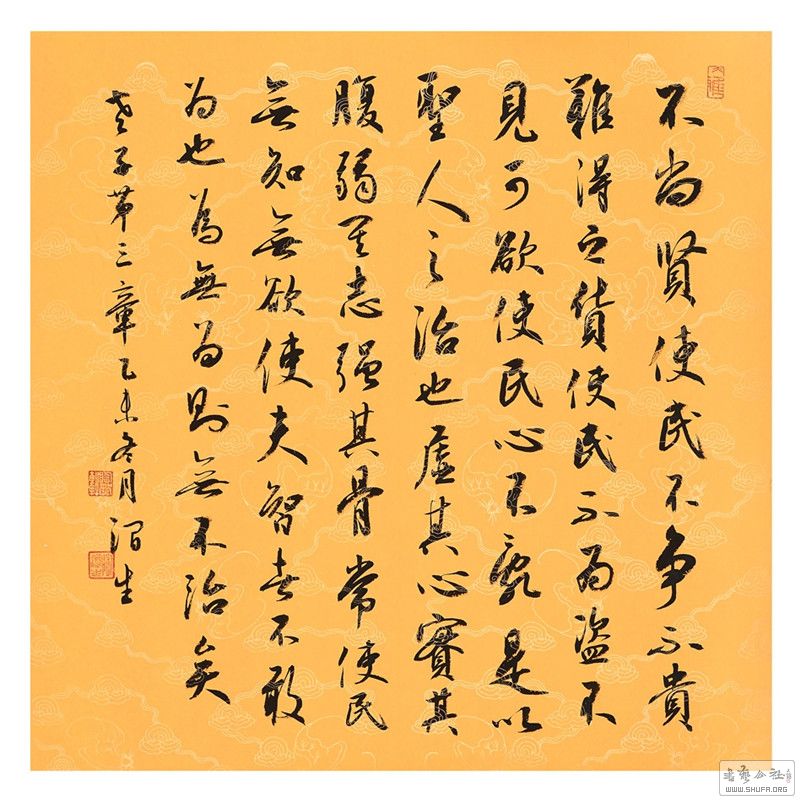 不尚賢使民不争不貴
難得之貨使民不為盗不
見可欲使民心不亂是以
聖人之治也虚其心實其
腹弱其志强其骨常使民
無知無欲使夫智者不敢
為也為無為則無不治矣
老子第三章乙未冬月湄生
書藝公社
WWW.SHUFA.ORG